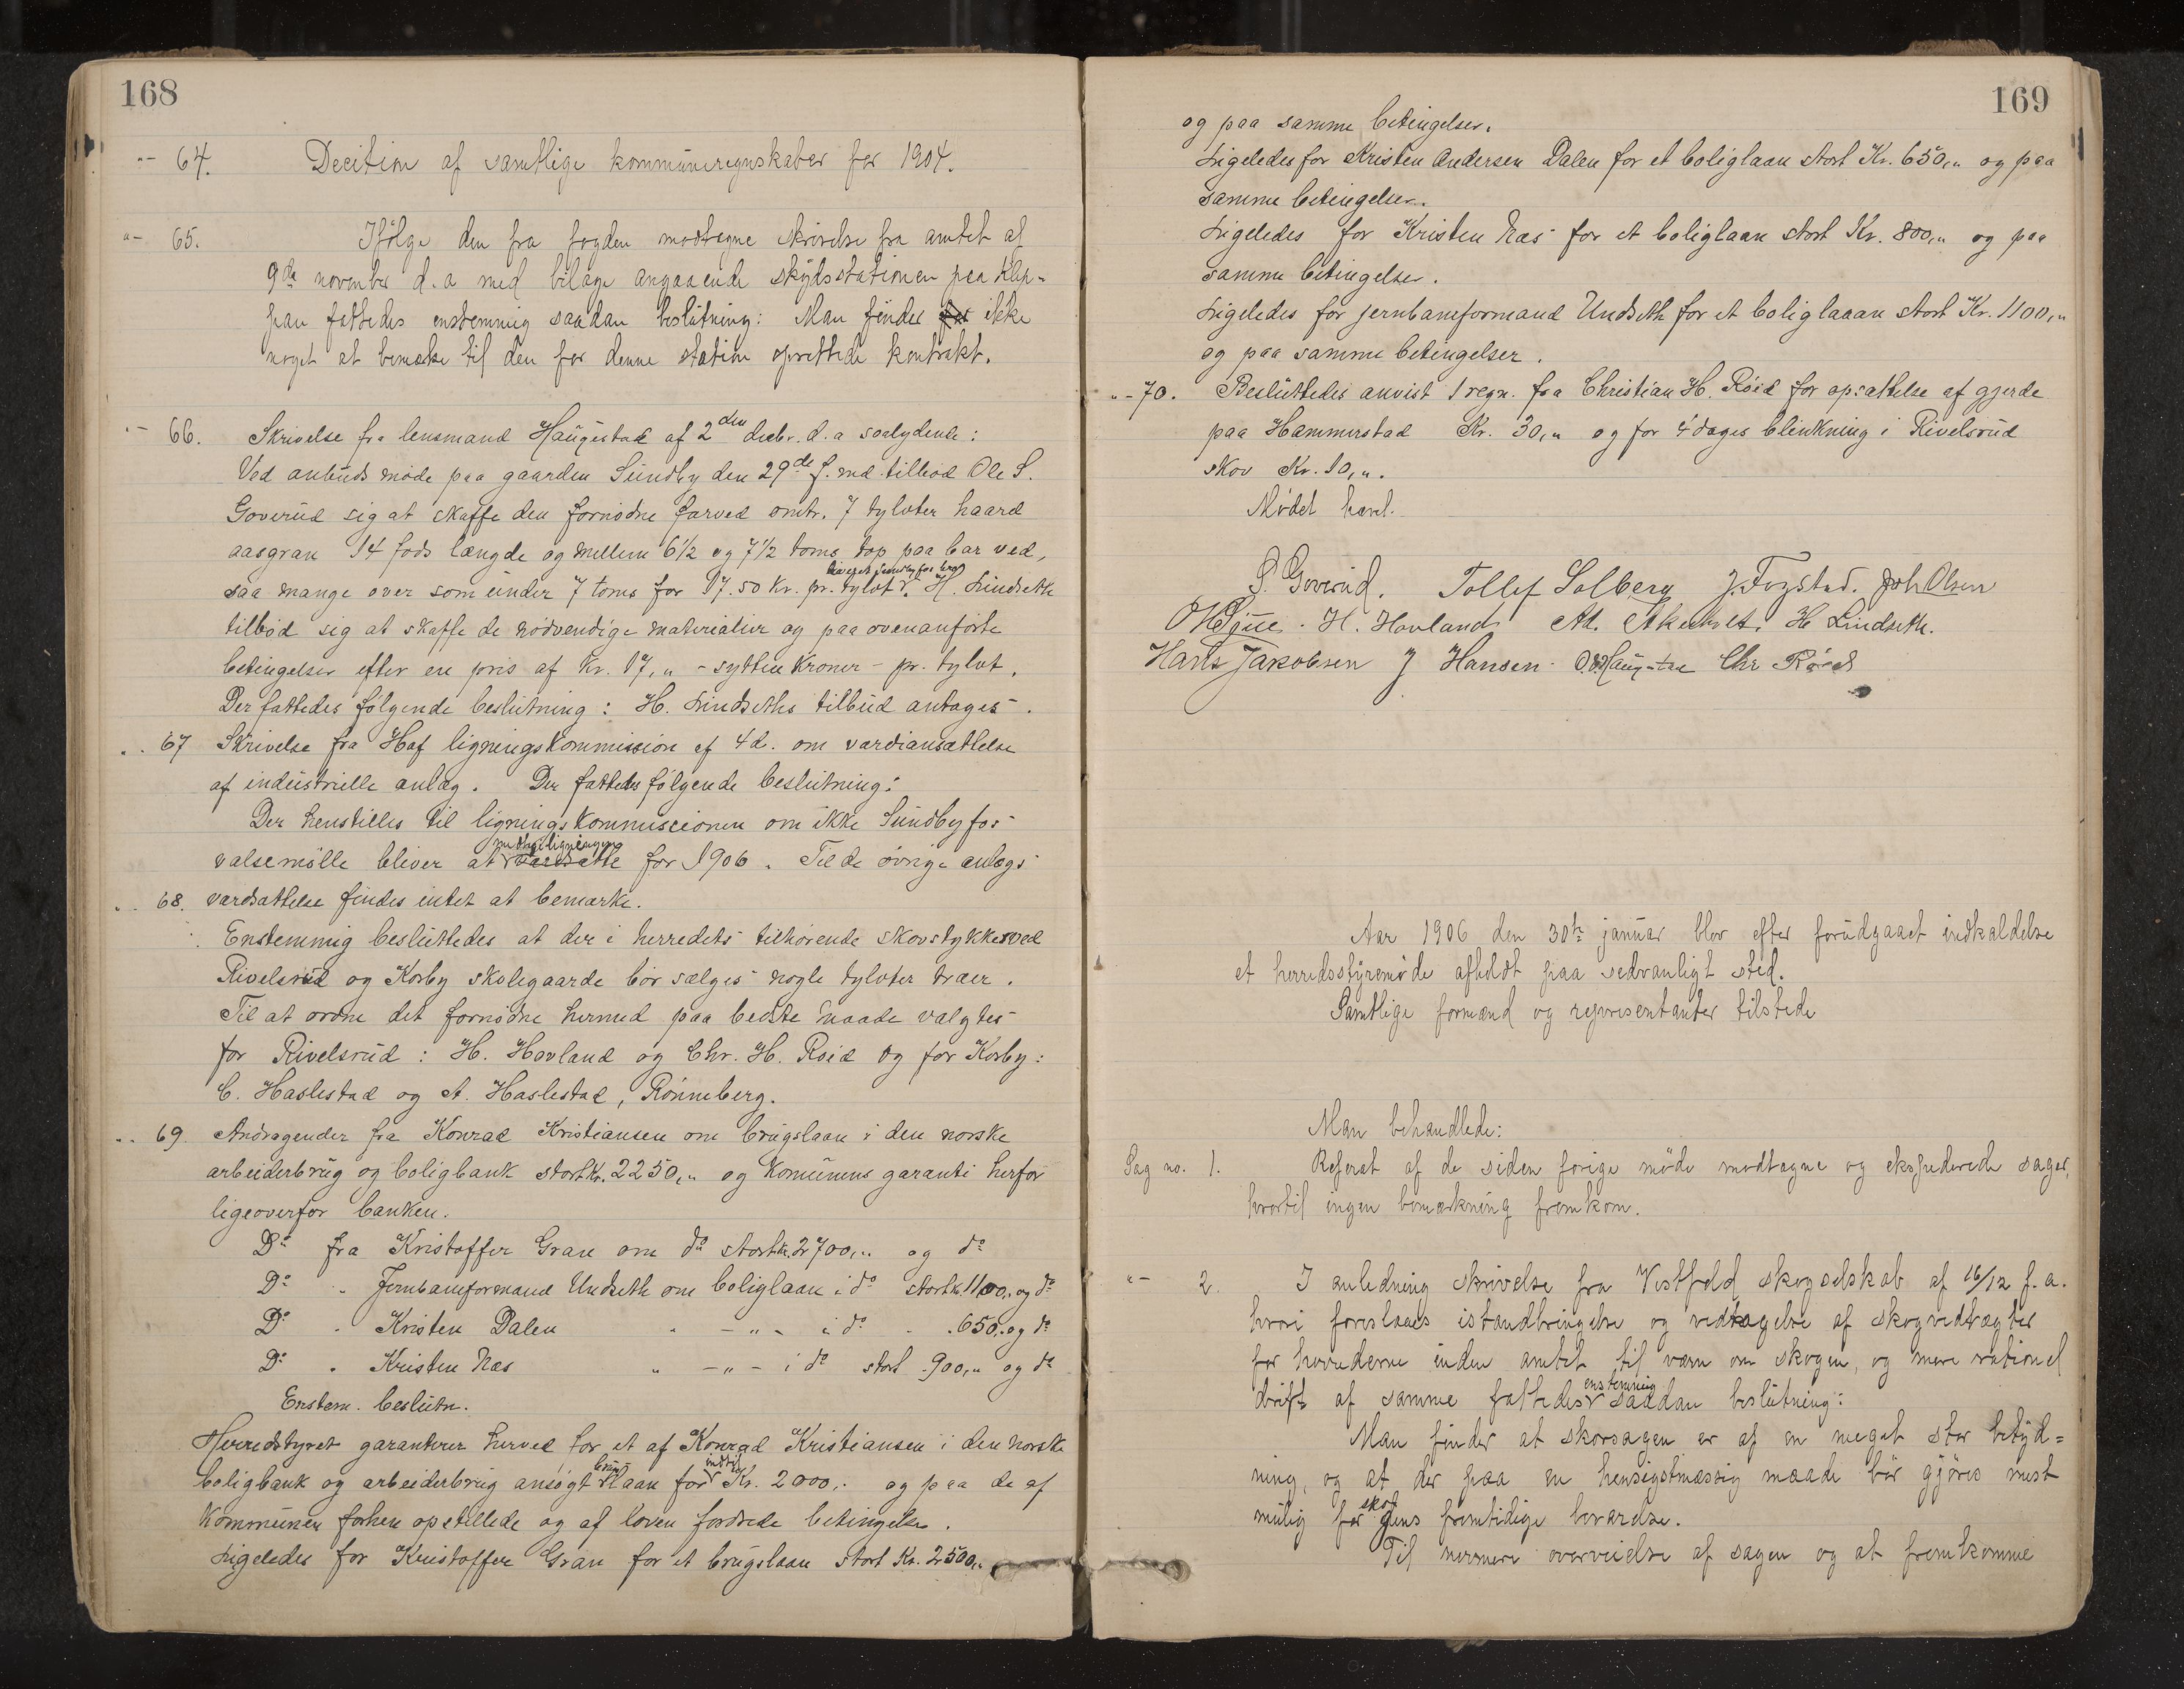 168
"– 64. Decition af samtlige kommuneregnskaber for 1904.
"– 65. Ifølge den fra fogden modtagne skrivelse fra amtet af
9de november d.a med bilage angaaende skydsstationen paa Klop-
pan fattedes enstemmig saadan beslutning: Man finder for ikke
noget at bemærke til den for denne station oprettede kontrakt.
"– 66. Skrivelse fra lensmand Haugestad af 2den decbr. d.a saalydende:
Ved anbuds møde paa gaarden Sundby den 29de f. md. tilbød Ole S.
Goverud sig at skaffe den fornødne farved omtr. 7 tylvter haard
aasgran 14 fods længde og mellem 6½ og 7½ toms top paa bar ved,
saa mange over som under 7 toms for 17.50 Kr. pr. tylvt. H. Lindseth
tilbød sig at skaffe de nødvendige materialier og paa ovenanførte
betingelser efter en pris af Kr. 17,„ – sytten Kroner – pr. tylvt.
Der fattedes følgende beslutning: H. Lindseths tilbud antages.
„. 67 Skrivelse fra Hof ligningskommission af 4d. om værdiansættelse
af industrielle anlæg. Der fattedes følgende beslutning:
Der henstilles til ligningskommissionen om ikke Sundbyfos
medtagligningen
valsemølle bliver at værdsætte for 1906. Til de øvrige anlægs
„. 68. værdsættelse findes intet at bemærke.
Enstemmig besluttedes at der i herredets tilhørende skovstykker ved
Rivelsrud og Korby skolegaarde bør sælges nogle tylvter trær.
Til at ordne det fornødne hermed paa bedste maade valgtes
for Rivelsrud: H. Hovland og Chr. H. Røid og for Korby:
C. Haslestad og A. Haslestad, Rønneberg.
„. 69. Andragender fra Konrad Kristiansen om brugslaan i den norske
arbeiderbrug og boligbank stort Kr. 2250,„ og Komunens garanti herfor
ligeoverfor banken.
Do fra Kristoffer Gran om do stort k. 2700,„ og do
Do „ Jernbaneformand Undseth om boliglaan i do stort k. 1100,„ og do
Do „ Kristen Dalen „ – „ – i do „ „ 650,„ og do
Do „ Kristen Næs „ – „ – i do stort 900,„ og do
Enstem. beslutn.
Herredstyret garanterer herved for et af Konrad Kristiansen i den norske
brugs indtil
boligbank og arbeiderbrug ansøgt laan for Kr. 2000,„ og paa de af
Kommunen forhen opstillede og af loven fordrede betingelser.
Ligeledes for Kristoffer Gran for et brugslaan stort Kr. 2500,„
169
og paa samme betingelser.
Ligeledes for Kristen Andersen Dalen for et boliglaan stort Kr. 650,„ og paa
samme betingelser.
Ligeledes for Kristen Næs for et boliglaan stort Kr. 800,„ og paa
samme betingelser.
Ligeledes for jernbaneformand Undseth for et boliglaaan stort Kr. 1100,„
og paa samme betingelser.
„– 70. Besluttedes anvist 1 regn. fra Christian H. Røid for opsættelse af gjerde
paa Hammerstad Kr. 30,„ og for 4 dages blinkning i Rivelsrud
skov Kr. 10,„.
Mødet hævet.
S. Goverud. Tollef Solberg J. Fogstad. Joh Olsen
H. Hovland Ad. H Lindseth.
Hans Jakobsen J Hansen Chr Røed
Aar 1906 den 30te januar blev efter forudgaaet indkaldelse
et herredsstyremøde afholdt paa sedvanligt sted.
Samtlige formænd og representanter tilstede
Man behandlede:
Sag no. 1. Referat af de siden forige møde modtagne og ekspederede sager,
hvortil ingen bemærkning fremkom.
"– 2. I anledning skrivelse fra Vestfold skogselskab af 16/12 f.a.
hvori foreslaaes istandbringelse og vedtagelse af skogvedtægter
for herrederne inden amtet til værn om skogen, og mere rationel
enstemmig
drift af samme fattedes saadan beslutning:
Man finder at skovsagen er af en meget stor betyd=
ning, og at der paa en hensigtsmæssig maade bør gjøres mest
skov
mulig for gens fremtidige bevarelse.
Til nærmere overveielse af sagen og at fremkomme